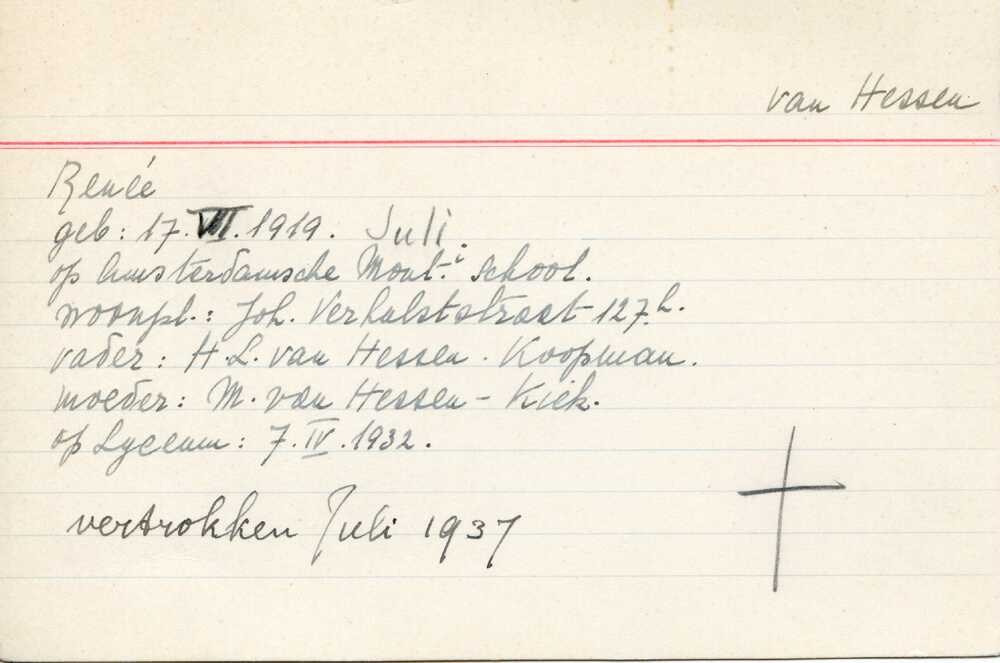 van Hessen
Renée
geb: 17. VII. 1919. Juli.
op Amsterdamsche Mont. School.
woonpl.: Joh. Verhulststraat 127 h.
vader: H. L. van Hessen. Koopman.
moeder: M. van Hessen - Kiek.
op Lyceum: 7. IV. 1932.
vertrokken Juli 1937